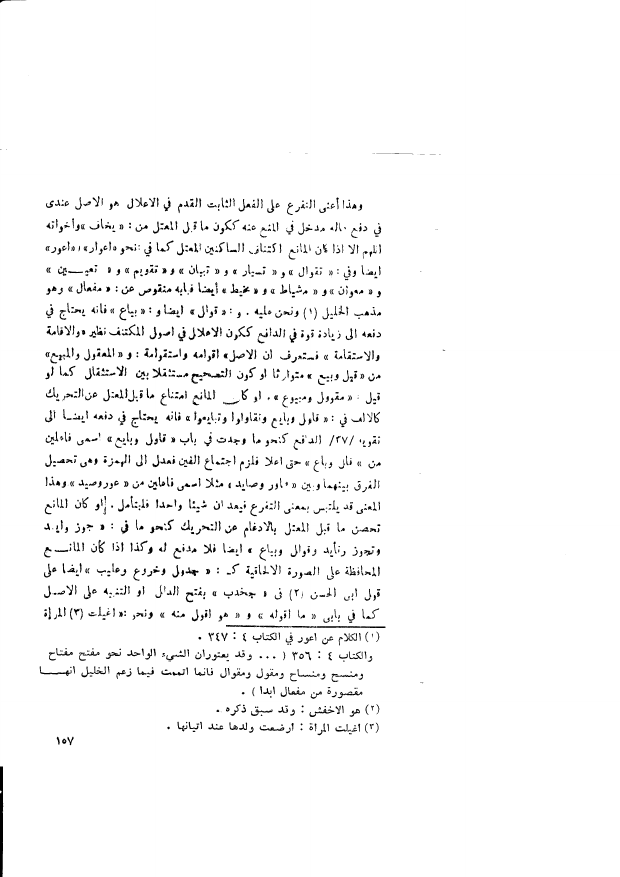 وهذا أعنى التفرع على الفعل الثابت القدم في الاعلال هو الاصل عندى
في دفع ماله مدخل في المنع عنه ككون ما قبل المعتل من : « يخاف » وأخواته
اللهم الا اذا كان المانع اكتناف الساكنين المعتل كما في نحو « اعوار » و « اعور »
ايضا وفي : « تقوال » و « تسيار » و « تبيان » و « تقويم » و « تعيــين »
و « معوان » و « مشياط » و « مخيط » أيضا فبابه منقوص عن : « مفعال » وهو
مذهب الخليل (١) ونحن عليه . و : « قوال » ايضا و : « بياع » فانه يحتاج في
دفعه الى زيادة قوة في الدافع ككون الاعلال في اصول المكتنف نظير « والاقامة
والاستقامة » فستعرف ان الاصل « اقوامه واستقوامة : و « المعقول والمبيع »
من « قيل وبيع » متوارثا او كون التصحيح مستثقلا بين الاستثقال كما لو
قيل : « مقوول ومبيوع » . او كان المانع امتناع ما قبل المعتل عن التحريك
كالالف في : « قاول وبايع وتقاولوا وتبايعوا » فانه يحتاج في دفعه ايضا الى
تقوية /٢٧/ الدافع كنحو ما وجدت في باب « قاول وبايع » اسمى فاعلين
من « قال وباع » حتى اعلا فلزم اجتماع الفين فعدل الى الهمزة وهى تحصيل
الفرق بينهما وبين « عاور وصايد » مثلا اسمى فاعلين من « عور وصيد » وهذا
المعنى قد يلتبس بمعنى التفرع فيعدان شيئا واحدا فليتأمل . او كان المانع
تحصن ما قبل المعتل بالادغام عن التحريك كنحو ما في : « جوز وايد
وتجوز وتأيد وقوال وبياع » ايضا فلا مدفع له وكذا اذا كان المانــع
المحافظة على الصورة الالحاقية كـ : « جدول وخروع وعليب » ايضا على
قول ابى الحسن (٢) فى « جخدب » بفتح الدال او التنبيه على الاصل
كما في بابى « ما اقوله » و « هو اقول منه » ونحو : « اغيلت (٣) المرأة
(١) الكلام عن اعور في الكتاب ٤ : ٣٤٧ .
والكتاب ٤ : ٣٥٦ ( ... وقد يعتوران الشيء الواحد نحو مفتح مفتاح
ومنسج ومنساج ومقول ومقوال فانما اتممت فيما زعم الخليل انهــا
مقصورة من مفعال ابدا ) .
(٢) هو الاخفش : وقد سبق ذكره .
(٣) اغيلت المراة : ارضعت ولدها عند اتيانها .
١٥٧